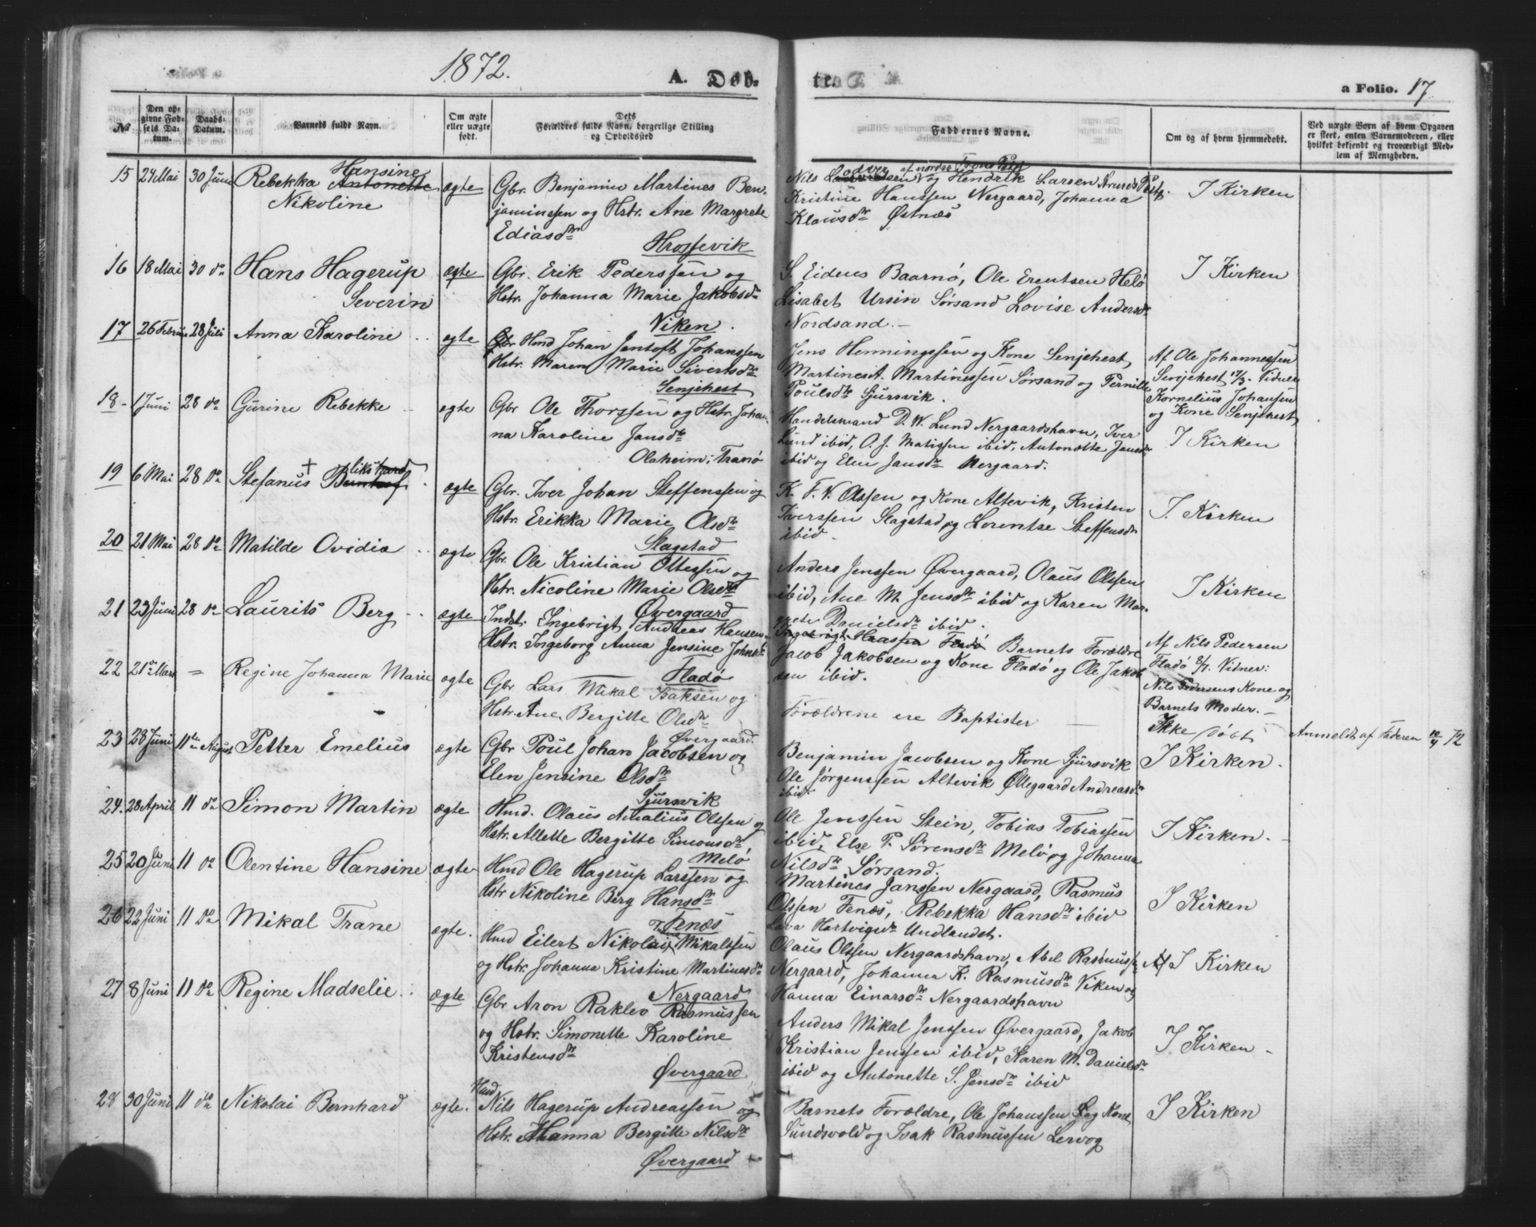 1872.
A. Døb-
te.
a Folio. 17
№
Den opgivne Fødsels Datum.
Daabs-Datum.
Barnets fulde Navn.
Om ægte eller uægte født.
Dets Forældres fulde Navn, borgerlige Stilling og Opholdsted
Faddernes Navne.
Om og af hvem hjemmedøbt.
Ved uægte Børn af hvem Opgaven er skeet, enten Barnemoderen, eller hvilket bekjendt og troværdigt Medlem af Menigheden.
15 24 Mai 30 Juni Rebekka Antonette Hansine Nikoline
ægte
Gbr. Benjamin Martines Ben-
jaminssen og Hstr. Ane Margrete
Ediasdr
Hrossevik
Hendrik Larsen
Kristine Hanssen, Nergaard, Johanna
Klausdr Østnæs
I Kirken
16 18 Mai 30 do Hans Hagerup
Severin
ægte
Gbr. Erik Pederssen og
Hstr. Johanna Marie Jakobsdr
Viken.
S. Eidens Baarnø, Ole Erentsen Helø
Lisabet Ursin Sørsand Lovise Andersdr
Nordsand.-
I Kirken
17 26 Februar 28 Juli Anna Karoline
ægte
Hmd Johan Jentoft Johanssen
Hstr. Maren Marie Sivertsdr
Senjehest
Jens Henningssen og Kone Senjehest,
Martines A. Martinessen Sørsand og Pernille
Poulsdr Gjursvik.
Af Ole Johannessen
Senjehest 17/3. Vidner
Kornelius Johansen
og Kone Senjehest
18- 1 Juni 28 do Gurine Rebekke
ægte
Gbr Ole Thorssen og Hstr. Johan-
na Karoline Jansdr
Olaheim, Tranø
Handelsmand D. W. Lund Nergaardshavn, Iver
Lund ibid, O. J. Matissen ibid, Antonette Jansdr
ibid og Elen Jansdr Nergaard.
I Kirken
19 6 Mai 28 do Stefanus +
ægte
Gbr. Iver Johan Steffenssen og
Hstr. Erikka Marie Olsdr
Slagstad
K. F. V. Olssen og Kone Altevik, Kristen
Iverssen Slagstad og Lorentse Steffensdr
ibid.
I. Kirken
20 21 Mai 28 do Matilde Ovidia
ægte
Gbr. Ole Kristian Ottessen og
Hstr. Nicoline Marie Olsdr
Øvergaard
Anders Jenssen Øvergaard, Olaus Olssen
ibid, Ane M. Jensdr ibid og Karen Mar-
grete Danielsdr ibid.
I Kirken
21 23 Juni 28 do Laurits Berg
ægte
Indst. Ingebrigt Andreas Hanssen
Hstr. Ingeborg Anna Jensine Johnsdr
Fladø
Barnets Forældre
Jacob Jakobsen og Kone Fladø og Ole Jakob-
sen ibid.
Af Nils Pedersen
Fladø 2/7. Vidner:
Nils Pedersens Kone og
Barnets Moder.-
22 21de Mars = Regine Johanna Marie
ægte
Gbr Lars Mikal Isaksen og
Hstr. Ane Bergitte Olsdr
Øvergaard
Forældrene ere Baptister
Ikke døbt
Anmeldt af Faderen 10/4 72
23 28 Juni 11te August Petter Emelius
ægte
Gbr Poul Johan Jacobsen og
Elen Jensine Olsdr
Gjursvik
Benjamin Jacobsen og Kone Gjursvik
Ole Jørgenssen Altevik Øllegaard Andreasdr
ibid
I Kirken.
24. 28 April 11 do Simon Martin
ægte
Hmd. Olaus Amalius Olssen og
Hstr. Allette Bergitte Simonsdr.
Melø
Ole Jenssen Stein, Tobias Tobiassen
ibid, Else P. Sørensdr Melø og Johanna
Nilsdr Sørsand.
I Kirken.-
25 20 Juni 11 do Olentine Hansine
ægte
Hmd Ole Hagerup Larssen og
Hstr Nikoline Berg Hansdr
Tenæs
Martines Janssen Nergaard, Rasmus
Olssen Tenæs, Rebekka Hansdr ibid
Lava Hartvigsdr Undlandet.
I Kirken
26 22 Juni 11 do Mikal Trane
ægte.
Hmd Eilert Nikolai Mikalssen
og Hstr. Johanna Kristine Martinesdr
Nergaard
Olaus Olssen Nergaardshavn, Abel Rasmussen
Nergaard, Johanna K. Rasmusdr Viken og
Hanna Einarsdr Nergaardshavn
I Kirken
27 8 Juni 11 do Regine Madselie
ægte
Gbr Aron Raklev Rasmussen
og Hstr. Simonette Karoline
Kristensdr
Øvergaard
Anders Mikal Jenssen Øvergaard, Jakob
Kristian Jenssen ibid, Karen M. Danielsdr
ibid og Antonette S. Jensdr ibid
I Kirken -
28 30 Juni 11 do Nikolai Bernhard
ægte.
Hmd
Nils Hagerup Andreassen og
Hstr. Hanna Bergitte Nilsdr
Øvergaard
Barnets Forældre, Ole Johanssen og Kone
Sundsvold og Isak Rasmussen Lervog
I Kirken